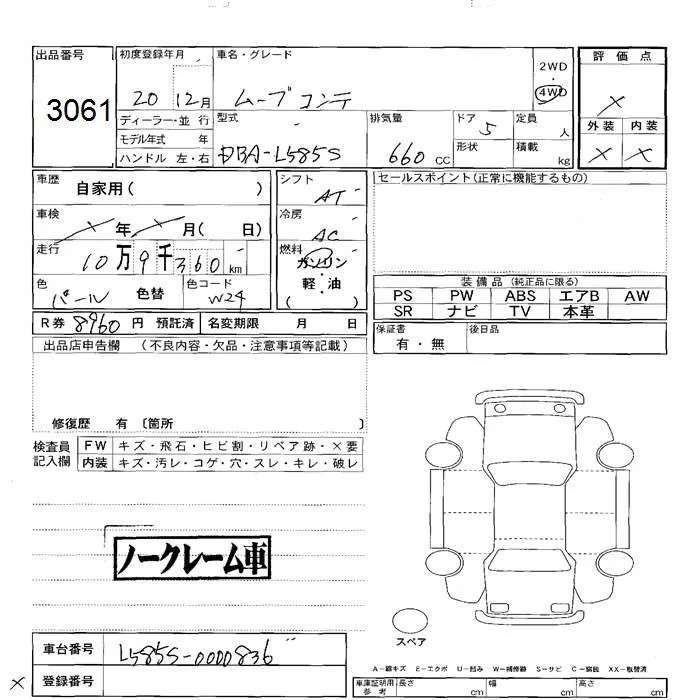 出品番号
3061
初度登録年月
20 12月
車名・グレード
ムーブコンテ
2WD
・
4WD
評価点
×
外装 内装
× ×
ディーラー・並 行
モデル年式 年
ハンドル 左・右
型式
DBA-L585S
排気量
660 CC
ドア
5
形状
定員
人
積載
kg
車歴
自家用( )
シフト
AT
セールスポイント(正常に機能するもの)
車検
× 年 × 月( 日)
冷房
AC
走行
10万9千360 km
燃料
ガソリン
軽・油
( )
色
パール
色替
色コード
W24
装備品 (純正品に限る)
PS PW ABS エアB AW
SR ナビ TV 本革
R券 8960 円 預託済 名変期限 月 日
保証書
有・無
後日品
出品店申告欄 (不良内容・欠品・注意事項等記載)
修復歴 有 〔箇所 〕
検査員
記入欄
FW キズ・飛石・ヒビ割・リペア跡・×要
内装 キズ・汚レ・コゲ・穴・スレ・キレ・破レ
ノークレーム車
スペア
車台番号
L585S-0000836
× 登録番号
A-線キズ E-エクボ U-凹み W-補修跡 S-サビ C-腐蝕 XX-取替済
車庫証明用
参考
長さ cm 幅 cm 高さ cm